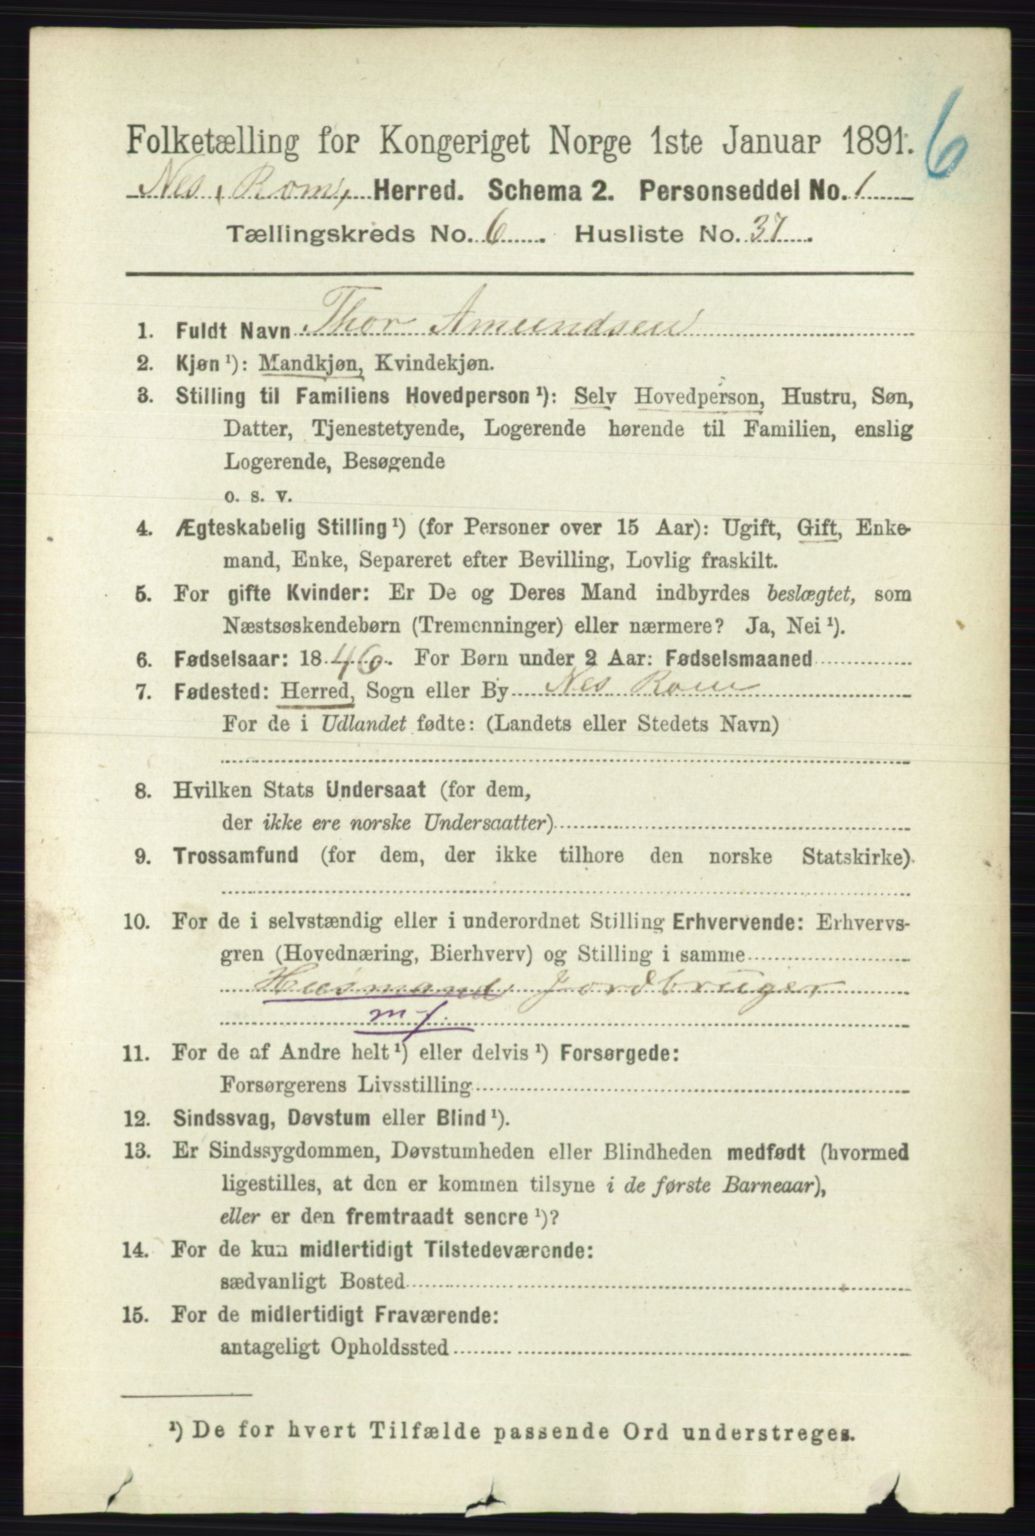 6
Folketælling for Kongeriget Norge 1ste Januar 1891.
Nes, Rom, Herred. Schema 2. Personseddel No. 1
Tællingskreds No. 6. Husliste No. 37.
1. Fuldt Navn Thor Amundsen
2. Kjøn ¹): Mandkjøn, Kvindekjøn.
3. Stilling til Familiens Hovedperson ¹): Selv Hovedperson, Hustru, Søn,
Datter, Tjenestetyende, Logerende hørende til Familien, enslig
Logerende, Besøgende
o. s. v.
4. Ægteskabelig Stilling ¹) (for Personer over 15 Aar): Ugift, Gift, Enke-
mand, Enke, Separeret efter Bevilling, Lovlig fraskilt.
5. For gifte Kvinder: Er De og Deres Mand indbyrdes beslægtet, som
Næstsøskendebørn (Tremenninger) eller nærmere? Ja, Nei ¹).
6. Fødselsaar: 1846. For Børn under 2 Aar: Fødselsmaaned
7. Fødested: Herred, Sogn eller By Nes Rom
For de i Udlandet fødte: (Landets eller Stedets Navn)
8. Hvilken Stats Undersaat (for dem,
der ikke ere norske Undersaatter)
9. Trossamfund (for dem, der ikke tilhøre den norske Statskirke)
10. For de i selvstændig eller i underordnet Stilling Erhvervende: Erhvervs-
gren (Hovednæring, Bierhverv) og Stilling i samme
Husmand Jordbruger
m j.
11. For de af Andre helt ¹) eller delvis ¹) Forsørgede:
Forsørgerens Livsstilling
12. Sindssvag, Døvstum eller Blind ¹).
13. Er Sindssygdommen, Døvstumheden eller Blindheden medfødt (hvormed
ligestilles, at den er kommen tilsyne i de første Barneaar),
eller er den fremtraadt senere ¹)?
14. For de kun midlertidigt Tilstedeværende:
sædvanligt Bosted
15. For de midlertidigt Fraværende:
antageligt Opholdssted
¹) De for hvert Tilfælde passende Ord understreges.